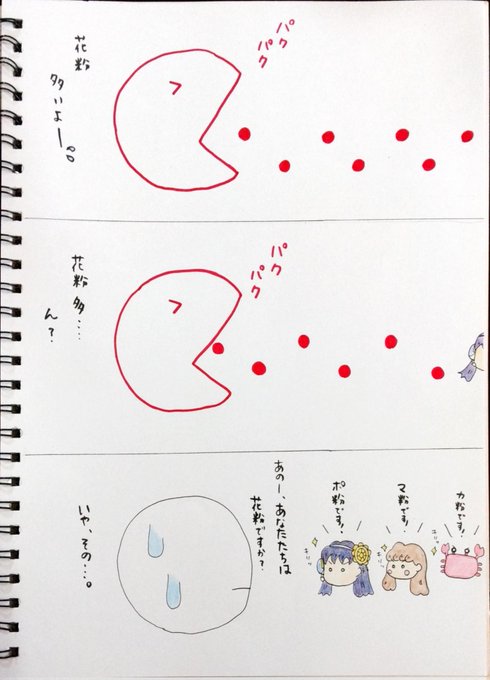 パク
パク
花粉
多いよー。。
パク
パク
花粉多……
ん?
カ粉です!
キリッ
マ粉です!
キリッ
ポ粉です!
キリッ
あのー、あなたたちは
花粉ですか?
いや、その…。